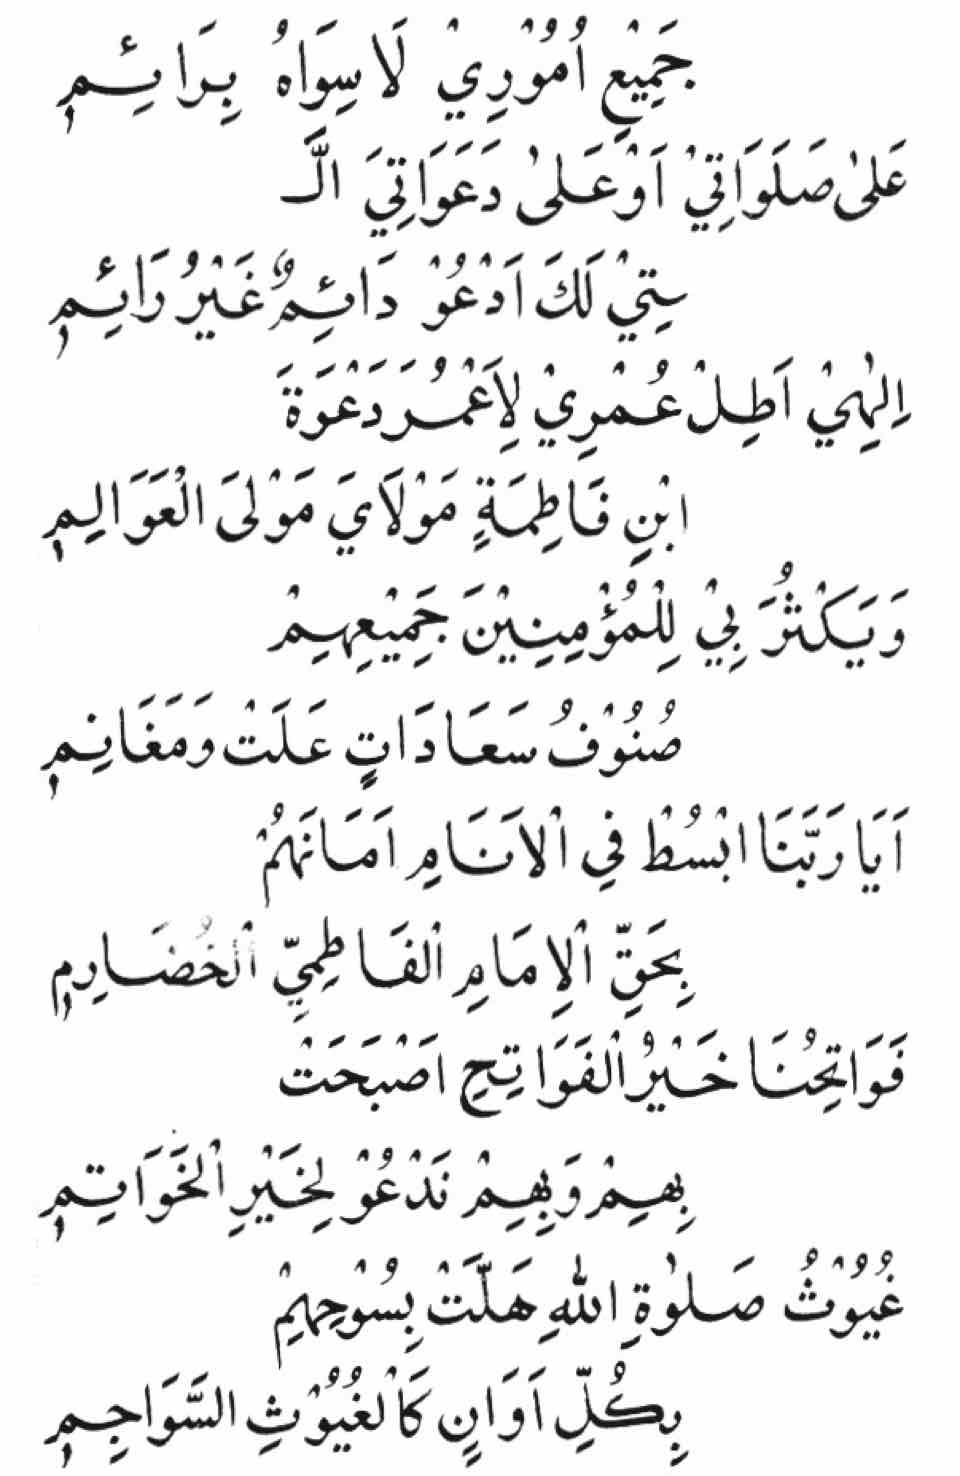 جَمِيْعِ اُمُوْرِيْ لَا سِوَاهُ بِرَائِمٖ
عَلىٰ صَلَوَاتِيْ اَوْ عَلىٰ دَعَوَاتِيَ الَّـ
ـتِيْ لَكَ اَدْعُوْ دَائِمٌ غَيْرُ رَائِمٖ
اِلٰهِيْ اَطِلْ عُمْرِيْ لِاَعْمُرَ دَعْوَةَ
ابْنِ فَاطِمَةٍ مَوْلَايَ مَوْلىَ الْعَوَالِمٖ
وَيَكْثُرَ بِيْ لِلْمُؤْمِنِيْنَ جَمِيْعِهِمْ
صُنُوْفُ سَعَادَاتٍ عَلَتْ وَمَغَانِمٖ
اَيَا رَبَّنَا ابْسُطْ فِي الْاَنَامِ اَمَانَهُمْ
بِحَقِّ الْاِمَامِ الْفَاطِمِيِّ الْخُضَارِمٖ
فَوَاتِحُنَا خَيْرُ الْفَوَاتِحِ اَصْبَحَتْ
بِهِمْ وَبِهِمْ نَدْعُوْ لِخَيْرِ الْخَوَاتِمٖ
غُيُوْثُ صَلٰوةِ اللهِ هَلَّتْ بِسُوْحِهِمْ
بِكُلِّ اَوَانٍ كَالْغُيُوْثِ السَّوَاجِمٖ